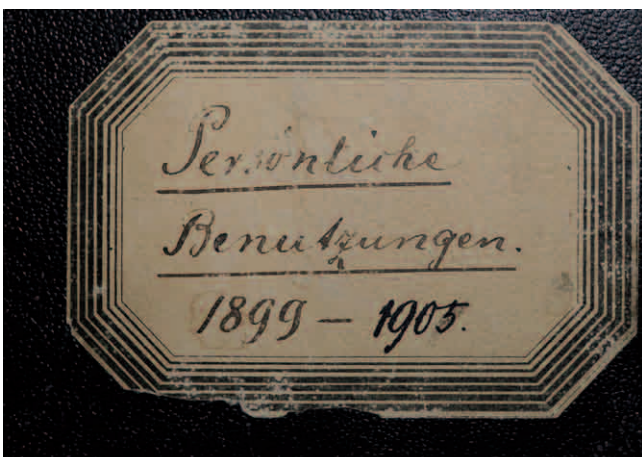 Persönliche
Benutzungen.
1899 – 1905.